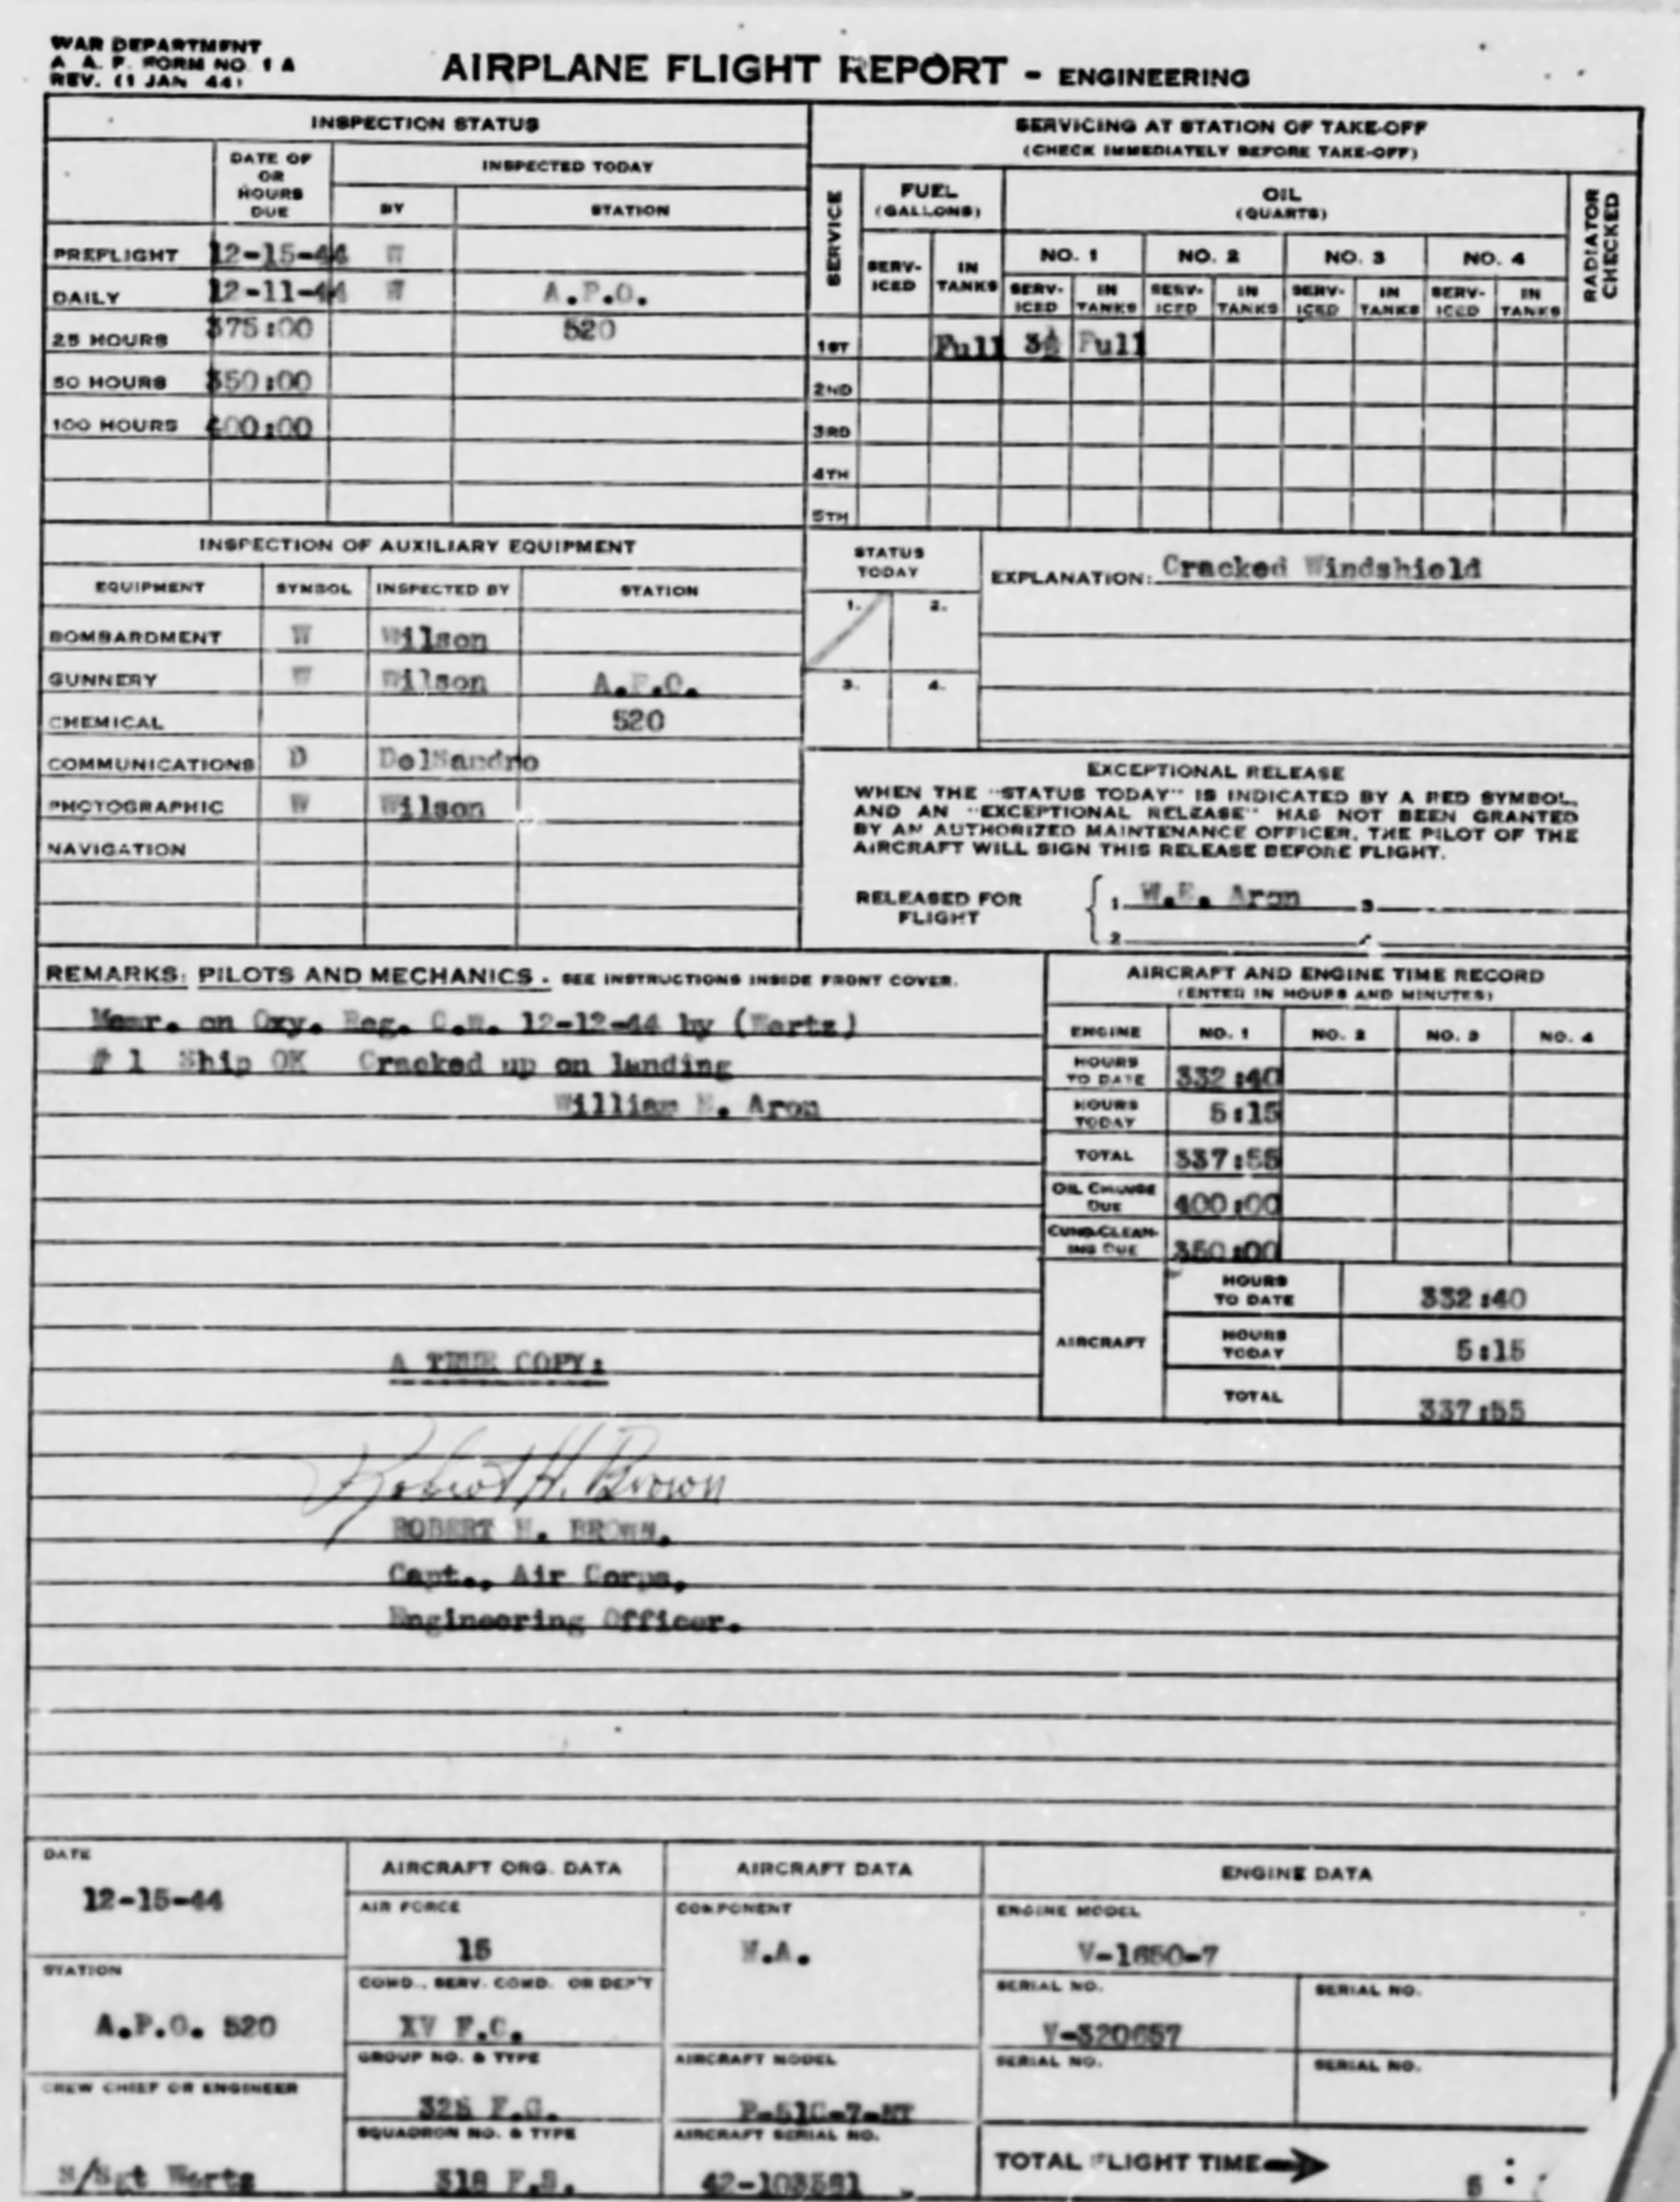 WAR DEPARTMENT
A. A. F. FORM NO. 1 A
REV. (1 JAN 44)
AIRPLANE FLIGHT REPORT - ENGINEERING
INSPECTION STATUS
DATE OF OR HOURS DUE
INSPECTED TODAY
BY STATION
PREFLIGHT 12-15-44 W
DAILY 12-11-44 W A.P.O.
25 HOURS 375:00 520
50 HOURS 350:00
100 HOURS 400:00
SERVICING AT STATION OF TAKE-OFF
(CHECK IMMEDIATELY BEFORE TAKE-OFF)
SERVICE
FUEL (GALLONS)
OIL (QUARTS)
RADIATOR CHECKED
NO. 1 NO. 2 NO. 3 NO. 4
SERV-ICED IN TANKS SERV-ICED IN TANKS SERV-ICED IN TANKS SERV-ICED IN TANKS SERV-ICED IN TANKS
1ST Full 3½ Full
2ND
3RD
4TH
5TH
INSPECTION OF AUXILIARY EQUIPMENT
EQUIPMENT SYMBOL INSPECTED BY STATION
BOMBARDMENT W Wilson
GUNNERY W Wilson A.P.O.
CHEMICAL 520
COMMUNICATIONS D DelSandro
PHOTOGRAPHIC W Wilson
NAVIGATION
STATUS TODAY
1. 2.
3. 4.
EXPLANATION: Cracked Windshield
EXCEPTIONAL RELEASE
WHEN THE "STATUS TODAY" IS INDICATED BY A RED SYMBOL,
AND AN "EXCEPTIONAL RELEASE" HAS NOT BEEN GRANTED
BY AN AUTHORIZED MAINTENANCE OFFICER, THE PILOT OF THE
AIRCRAFT WILL SIGN THIS RELEASE BEFORE FLIGHT.
RELEASED FOR FLIGHT
1. W.E. Aron 3.
2.
REMARKS: PILOTS AND MECHANICS - SEE INSTRUCTIONS INSIDE FRONT COVER.
on Oxy. Reg. C.W. 12-12-44 by (Wertz)
# 1 Ship OK Cracked up on landing
William E. Aron
AIRCRAFT AND ENGINE TIME RECORD
(ENTER IN HOURS AND MINUTES)
ENGINE NO. 1 NO. 2 NO. 3 NO. 4
HOURS TO DATE 332:40
HOURS TODAY 5:15
TOTAL 337:55
OIL CHANGE DUE 400:00
CUNO-CLEAN-ING DUE 350:00
AIRCRAFT
HOURS TO DATE 332:40
HOURS TODAY 5:15
TOTAL 337:55
A TRUE COPY:
Robert H. Brown
ROBERT H. BROWN,
Capt., Air Corps,
Engineering Officer.
DATE
12-15-44
STATION
A.P.O. 520
CREW CHIEF OR ENGINEER
S/Sgt Wertz
AIRCRAFT ORG. DATA
AIR FORCE
15
COMD., SERV. COMD. OR DEP'T
XV F.C.
GROUP NO. & TYPE
325 F.G.
SQUADRON NO. & TYPE
318 F.S.
AIRCRAFT DATA
COMPONENT
N.A.
AIRCRAFT MODEL
P-51C-7-NT
AIRCRAFT SERIAL NO.
42-103581
ENGINE DATA
ENGINE MODEL
V-1650-7
SERIAL NO. SERIAL NO.
V-320657
SERIAL NO. SERIAL NO.
TOTAL FLIGHT TIME 5 :